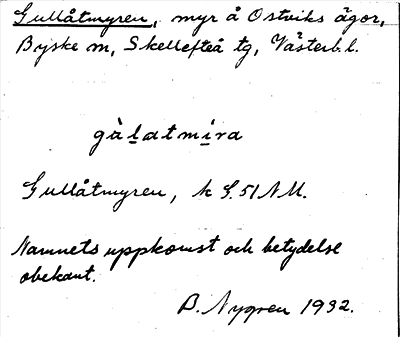 Gullåtmyren, myr å Ostviks ägor,
Byske sn, Skellefteå tg, Västerb. l.
gàḷatmi̱ra
Gullåtmyren, k G. 51 NM.
Namnets uppkomst och betydelse
obekant.
B. Nygren 1932.